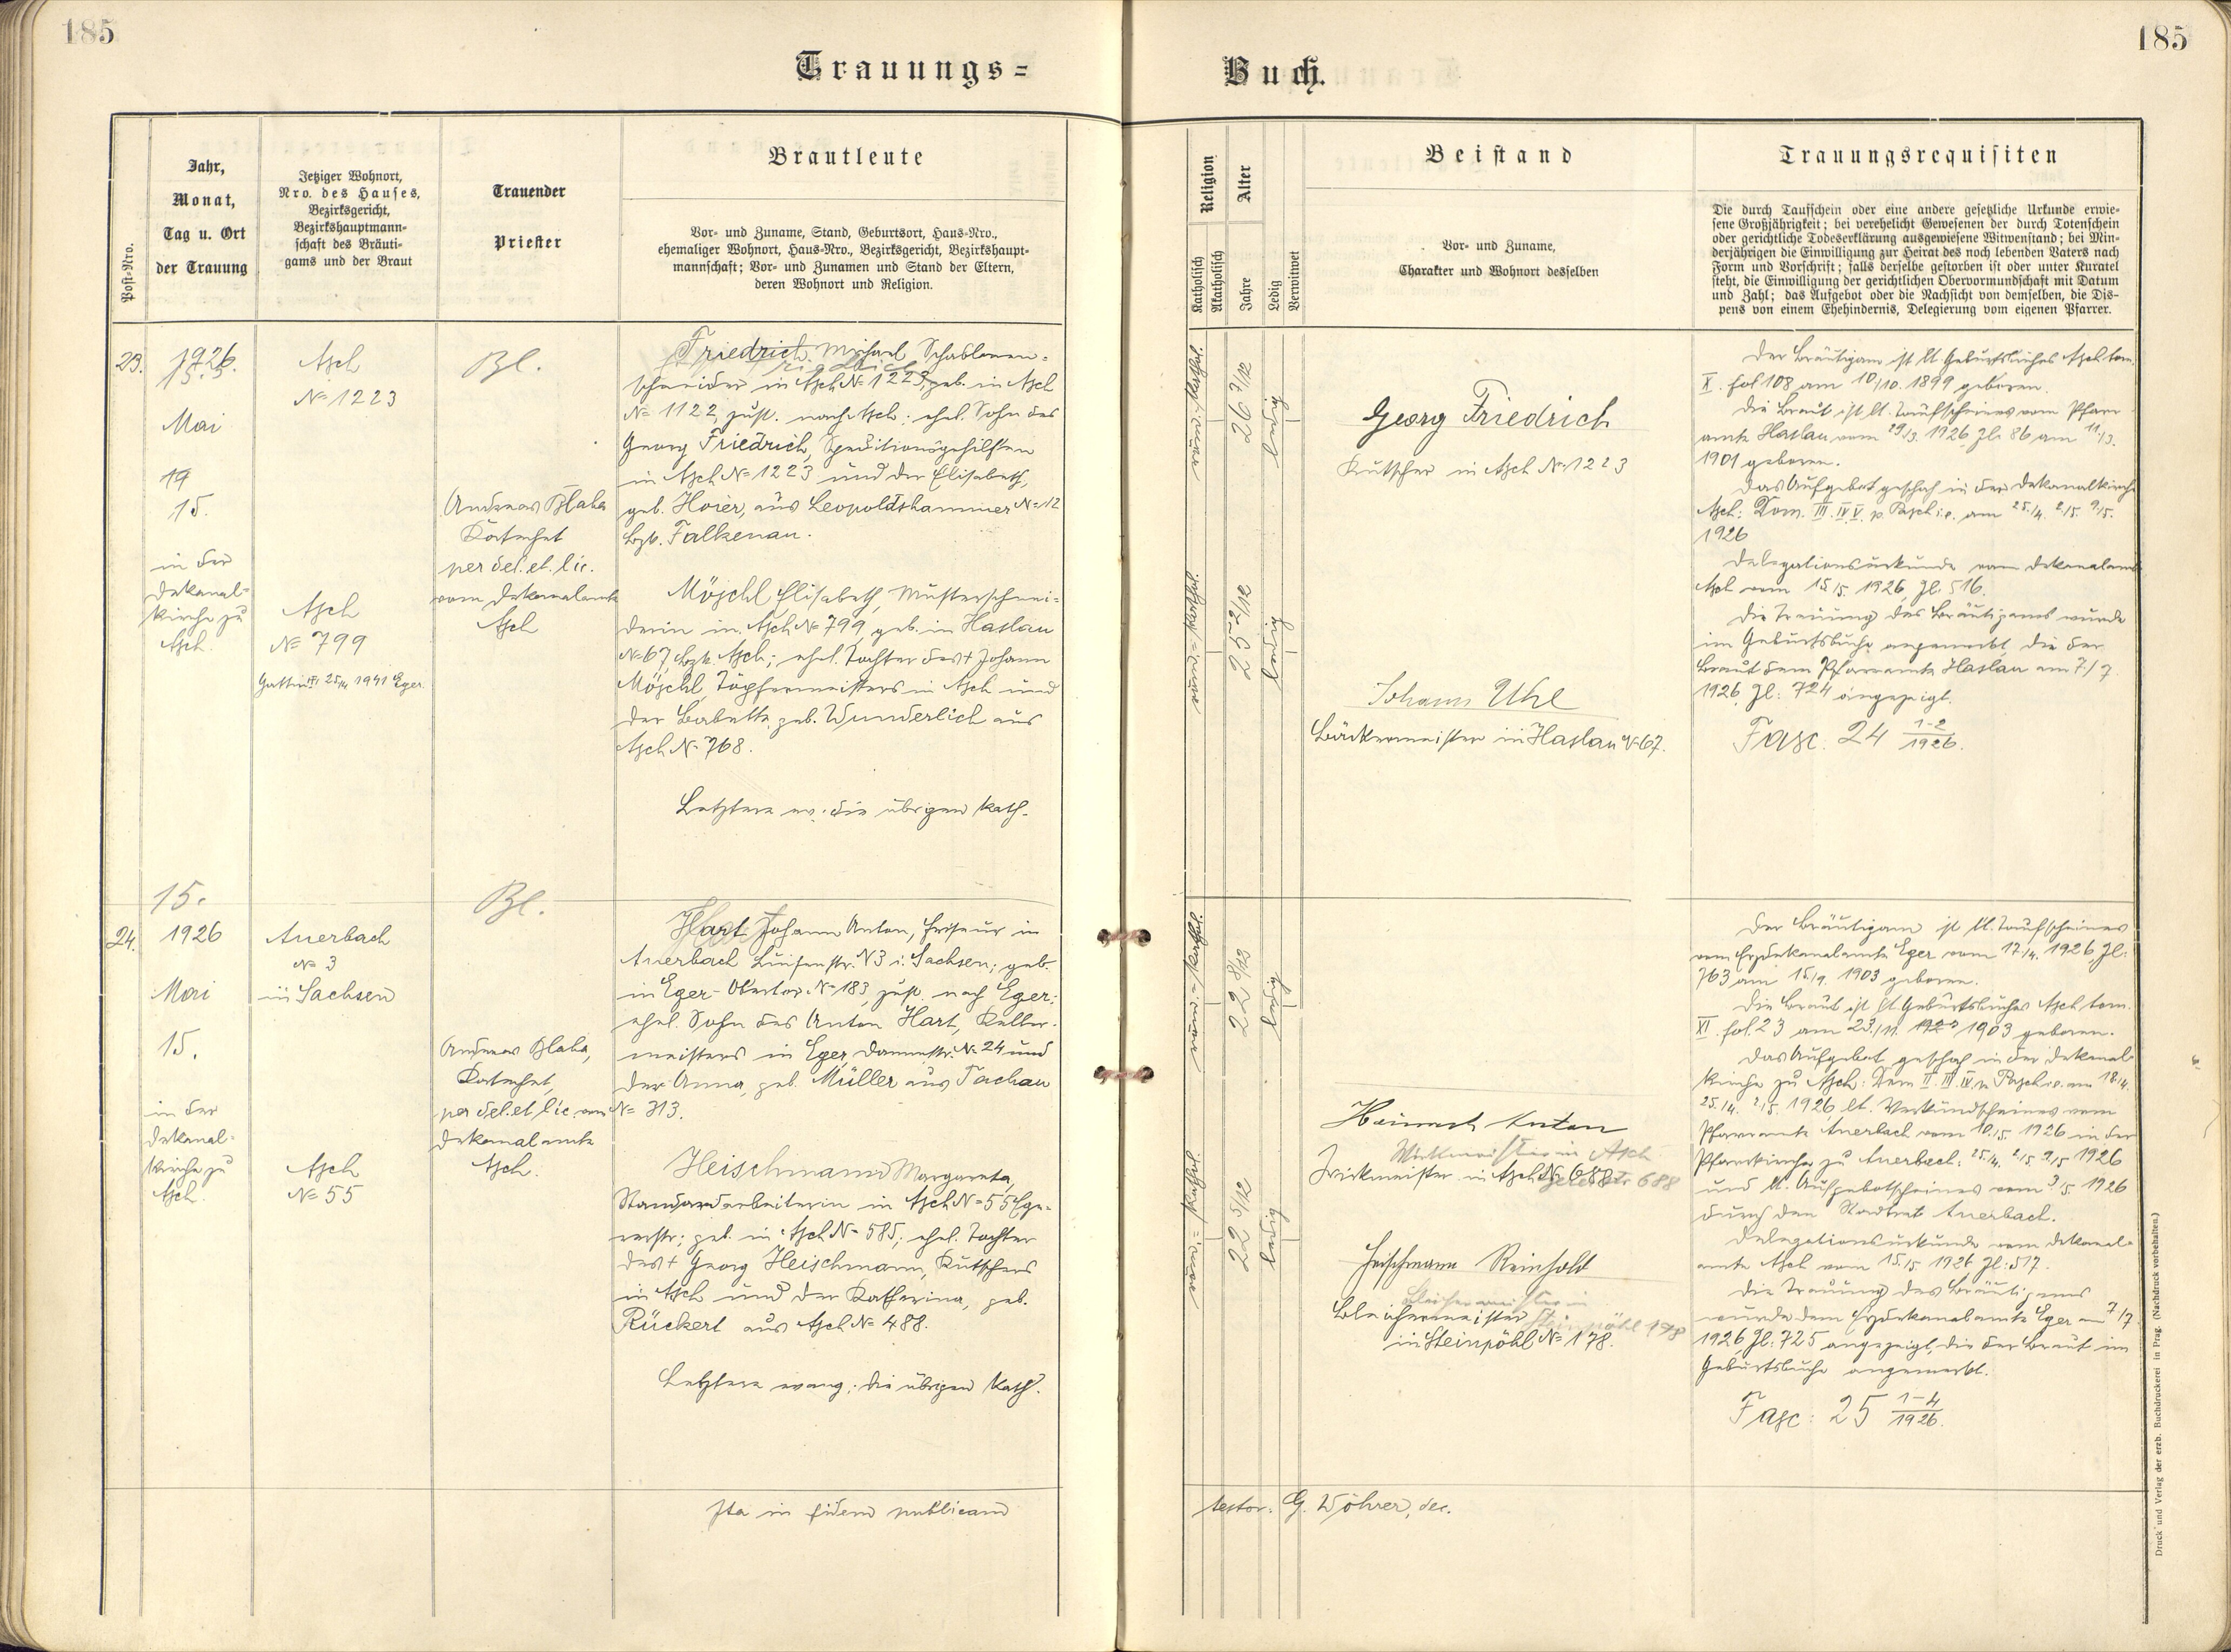 185
185
Trauungs=
Buch.
Post-Nro.
Jahr,
Monat,
Tag u. Ort
der Trauung
Jetziger Wohnort,
Nro. des Hauses,
Bezirksgericht,
Bezirkshauptmann-
schaft des Bräuti-
gams und der Braut
Trauender
Priester
Brautleute
Vor- und Zuname, Stand, Geburtsort, Haus-Nro.,
ehemaliger Wohnort, Haus-Nro., Bezirksgericht, Bezirkshaupt-
mannschaft; Vor- und Zunamen und Stand der Eltern,
deren Wohnort und Religion.
Religion
Katholisch
Akatholisch
Alter
Jahre
Ledig
Verwitwet
Beistand
Vor- und Zuname,
Charakter und Wohnort desselben
Trauungsrequisiten
Die durch Taufschein oder eine andere gesetzliche Urkunde erwie-
sene Großjährigkeit; bei verehelicht Gewesenen der durch Totenschein
oder gerichtliche Todeserklärung ausgewiesene Witwenstand; bei Min-
derjährigen die Einwilligung zur Heirat des noch lebenden Vaters nach
Form und Vorschrift; falls derselbe gestorben ist oder unter Kuratel
steht, die Einwilligung der gerichtlichen Obervormundschaft mit Datum
und Zahl; das Aufgebot oder die Nachsicht von demselben, die Dis-
pens von einem Ehehindernis, Delegierung vom eigenen Pfarrer.
23.
1926.
Mai
19
15.
in der
Dekanal-
kirche zu
Asch.
Asch
№ 1223
Asch
№ 799
Gattin 25/4 1941 Eger.
Bl.
Andreas Blaha
Katechet
per del. et. lic.
vom Dekanalamte
Asch
Friedrich Michael Schablonen-
schneider in Asch № 1223, geb. in Asch
№ 1122, zust. nach Asch; ehel. Sohn des
Georg Friedrich, Speditionsgehilfen
in Asch № 1223 und der Elisabeth,
geb. Hoier, aus Leopoldshammer № 12
Bzk. Falkenau.
Möschl Elisabeth, Musterschnei-
derin in Asch № 799, geb. in Haslau
№ 67, Bzk. Asch; ehel. Tochter des + Johann
Möschl, Töpfermeisters in Asch und
der Babette, geb. Wunderlich aus
Asch № 768.
Letztere ev. die übrigen kath.
26 7/12
ledig
25 2/12
ledig
Georg Friedrich
Kutscher in Asch № 1223
Johann Uhl
Bäckermeister in Haslau № 67.
Der Bräutigam ist lt. Geburtsbuches Asch tom.
X. fol 108 am 10/10. 1899 geboren.
Die Braut ist lt. Taufscheines vom Pfarr-
amte Haslau vom 29/3. 1926 Zl. 86 am 11./3.
1901 geboren.
Das Aufgebot geschah in der Dekanalkirche
Asch: Dom. III. IV. V. p. Pasch i. e. am 25./4. 2./5. 9./5.
1926
Delegationsurkunde vom Dekanalamte
Asch vom 15/5 1926, Zl. 516.
Die Trauung des Bräutigams wurde
im Geburtsbuche angemerkt, die der
Braut dem Pfarramte Haslau am 7/7
1926, Zl: 724 angezeigt.
Fasc. 24 1-2/1926.
15.
24.
1926
Mai
15.
in der
Dekanal-
kirche zu
Asch.
Auerbach
№ 3
in Sachsen
Asch
№ 55
Bl.
Andreas Blaha,
Katechet,
per del. et lic vom
Dekanalamte
Asch.
Hart Johann Anton, Friseur in
Auerbach № 3 i. Sachsen; geb.
in Eger-Obertor № 183, zust. nach Eger;
ehel. Sohn des Anton Hart, Keller-
meisters in Eger, Dammstr. № 24 und
der Anna, geb. Müller aus Tachau
№ 313.
Heischmann Margareta,
Standardarbeiterin in Asch № 55 Ege-
rerstr; geb. in Asch № 585; ehel. Tochter
des + Georg Heischmann, Kutschers
in Asch und der Katharina, geb.
Rückert aus Asch № 488.
Letztere evang; die übrigen kath.
22 8/12
ledig
22 5/12
ledig
Anton
Wirkmeister in Asch № 688
Heischmann Reinhold
Bleichermeister
in Steinpöhl № 178.
Der Bräutigam ist lt. Taufscheines
vom Erzdekanalamte Eger vom 17/4. 1926, Zl:
763 am 15/9. 1903 geboren.
Die Braut ist lt. Geburtsbuches Asch tom.
XI. fol. 23 am 23./11. 1903 geboren.
Das Aufgebot geschah in der Dekanal-
kirche zu Asch: Dom II. III. IV. p. Pasch i. e. am 18./4.
25./4. 2./5. 1926, lt. Verkündscheines vom
Pfarramte Auerbach vom 10./5. 1926 in der
Pfarrkirche zu Auerbach: 25./4. 2./5 9./5 1926
und lt. Aufgebotscheines vom 3./5. 1926
durch den Stadtrat Auerbach.
Delegationsurkunde vom Dekanal-
amte Asch vom 15./5 1926 Zl: 517.
Die Trauung des Bräutigams
wurde dem Erzdekanalamte Eger am 7/7
1926, Zl: 725 angezeigt, die der Braut im
Geburtsbuche angemerkt.
Fasc: 25 1-4/1926.
Ita in fidem publicam
testor. G. Wöhrer, dec.
Druck und Verlag der erzb. Buchdruckerei in Prag. (Nachdruck vorbehalten.)